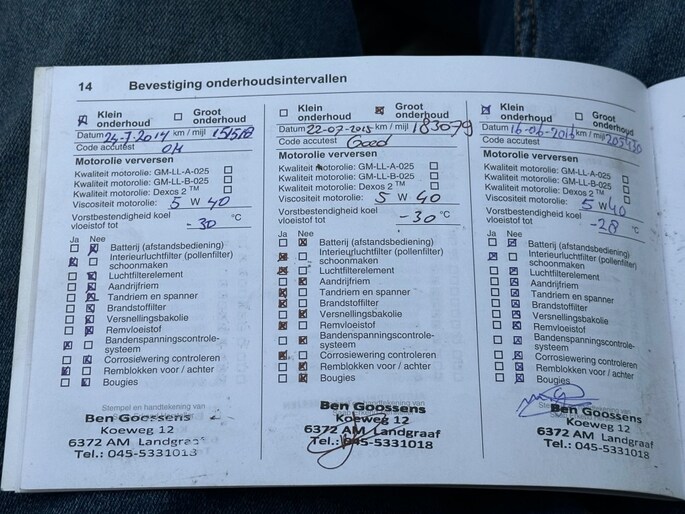 14 Bevestiging onderhoudsintervallen
Klein onderhoud Groot onderhoud
Datum 24-7-2014 km / mijl
Code accutest OK
Motorolie verversen
Kwaliteit motorolie: GM-LL-A-025
Kwaliteit motorolie: GM-LL-B-025
Kwaliteit motorolie: Dexos 2 TM
Viscositeit motorolie: 5 W 40
Vorstbestendigheid koel
vloeistof tot -30 °C
Ja Nee
Batterij (afstandsbediening)
Interieurluchtfilter (pollenfilter)
schoonmaken
Luchtfilterelement
Aandrijfriem
Tandriem en spanner
Brandstoffilter
Versnellingsbakolie
Remvloeistof
Bandenspanningscontrole-
systeem
Corrosiewering controleren
Remblokken voor / achter
Bougies
Stempel en handtekening van
Ben Goossens
Koeweg 12
6372 AM Landgraaf
Tel.: 045-5331018
Klein onderhoud Groot onderhoud
Datum 22-07-2015 km / mijl 183079
Code accutest Goed
Motorolie verversen
Kwaliteit motorolie: GM-LL-A-025
Kwaliteit motorolie: GM-LL-B-025
Kwaliteit motorolie: Dexos 2 TM
Viscositeit motorolie: 5 W 40
Vorstbestendigheid koel
vloeistof tot -30 °C
Ja Nee
Batterij (afstandsbediening)
Interieurluchtfilter (pollenfilter)
schoonmaken
Luchtfilterelement
Aandrijfriem
Tandriem en spanner
Brandstoffilter
Versnellingsbakolie
Remvloeistof
Bandenspanningscontrole-
systeem
Corrosiewering controleren
Remblokken voor / achter
Bougies
Ben Goossens
Koeweg 12
6372 AM Landgraaf
Tel.: 045-5331018
Klein onderhoud Groot onderhoud
Datum 16-06-2016 km / mijl
Code accutest
Motorolie verversen
Kwaliteit motorolie: GM-LL-A-025
Kwaliteit motorolie: GM-LL-B-025
Kwaliteit motorolie: Dexos 2 TM
Viscositeit motorolie: 5 W 40
Vorstbestendigheid koel
vloeistof tot -28 °C
Ja Nee
Batterij (afstandsbediening)
Interieurluchtfilter (pollenfilter)
schoonmaken
Luchtfilterelement
Aandrijfriem
Tandriem en spanner
Brandstoffilter
Versnellingsbakolie
Remvloeistof
Bandenspanningscontrole-
systeem
Corrosiewering controleren
Remblokken voor / achter
Bougies
Ben Goossens
Koeweg 12
6372 AM Landgraaf
Tel.: 045-5331018